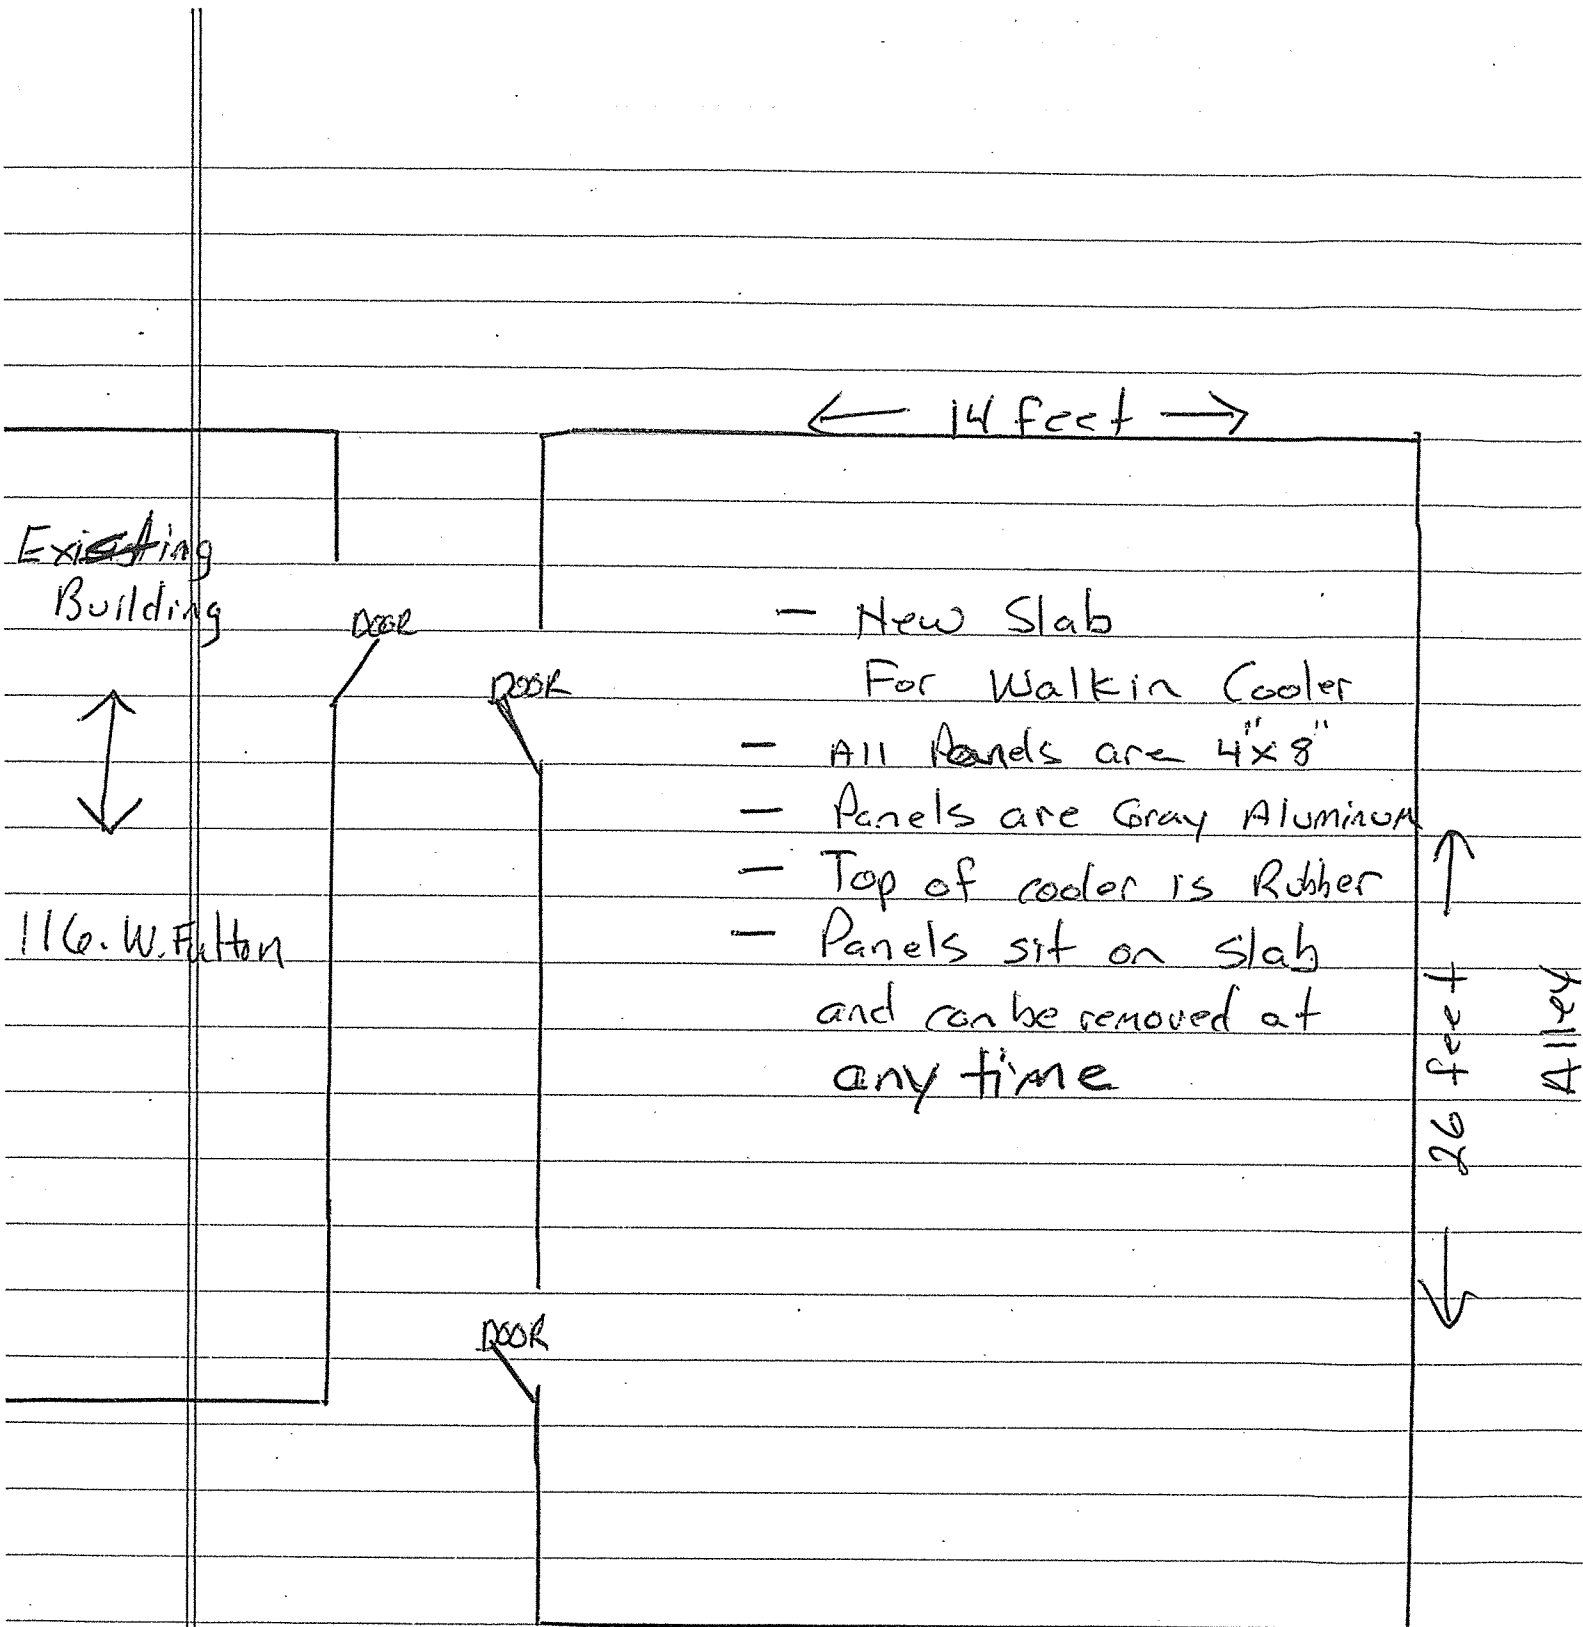 ← 14 feet →
Existing
Building
DOOR
DOOR
- New Slab
For Walkin Cooler
- All Panels are 4"x8"
- Panels are Gray Aluminum
- Top of cooler is Rubber
- Panels sit on slab
and can be removed at
any time
116. W. Fulton
26 feet
Alley
DOOR